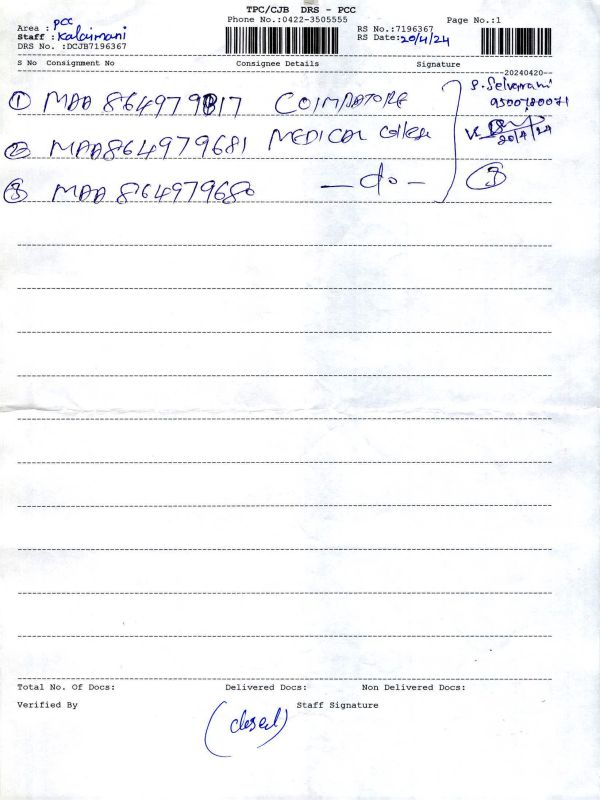 TPC/CJB DRS - PCC
Area : PCC
Phone No.:0422-3505555
Page No.:1
Staff : Kalaimani
RS No.:7196367
DRS No. :DCJB7196367
RS Date:20/4/24
S No Consignment No Consignee Details Signature
--20240420--
① MAA 864979817 COIMBATORE S. Selvarani
② MAA864979681 MEDICAL College 20/4/24
③ MAA 864979680 — do — ③
Total No. Of Docs: Delivered Docs: Non Delivered Docs:
Verified By Staff Signature
(closed)